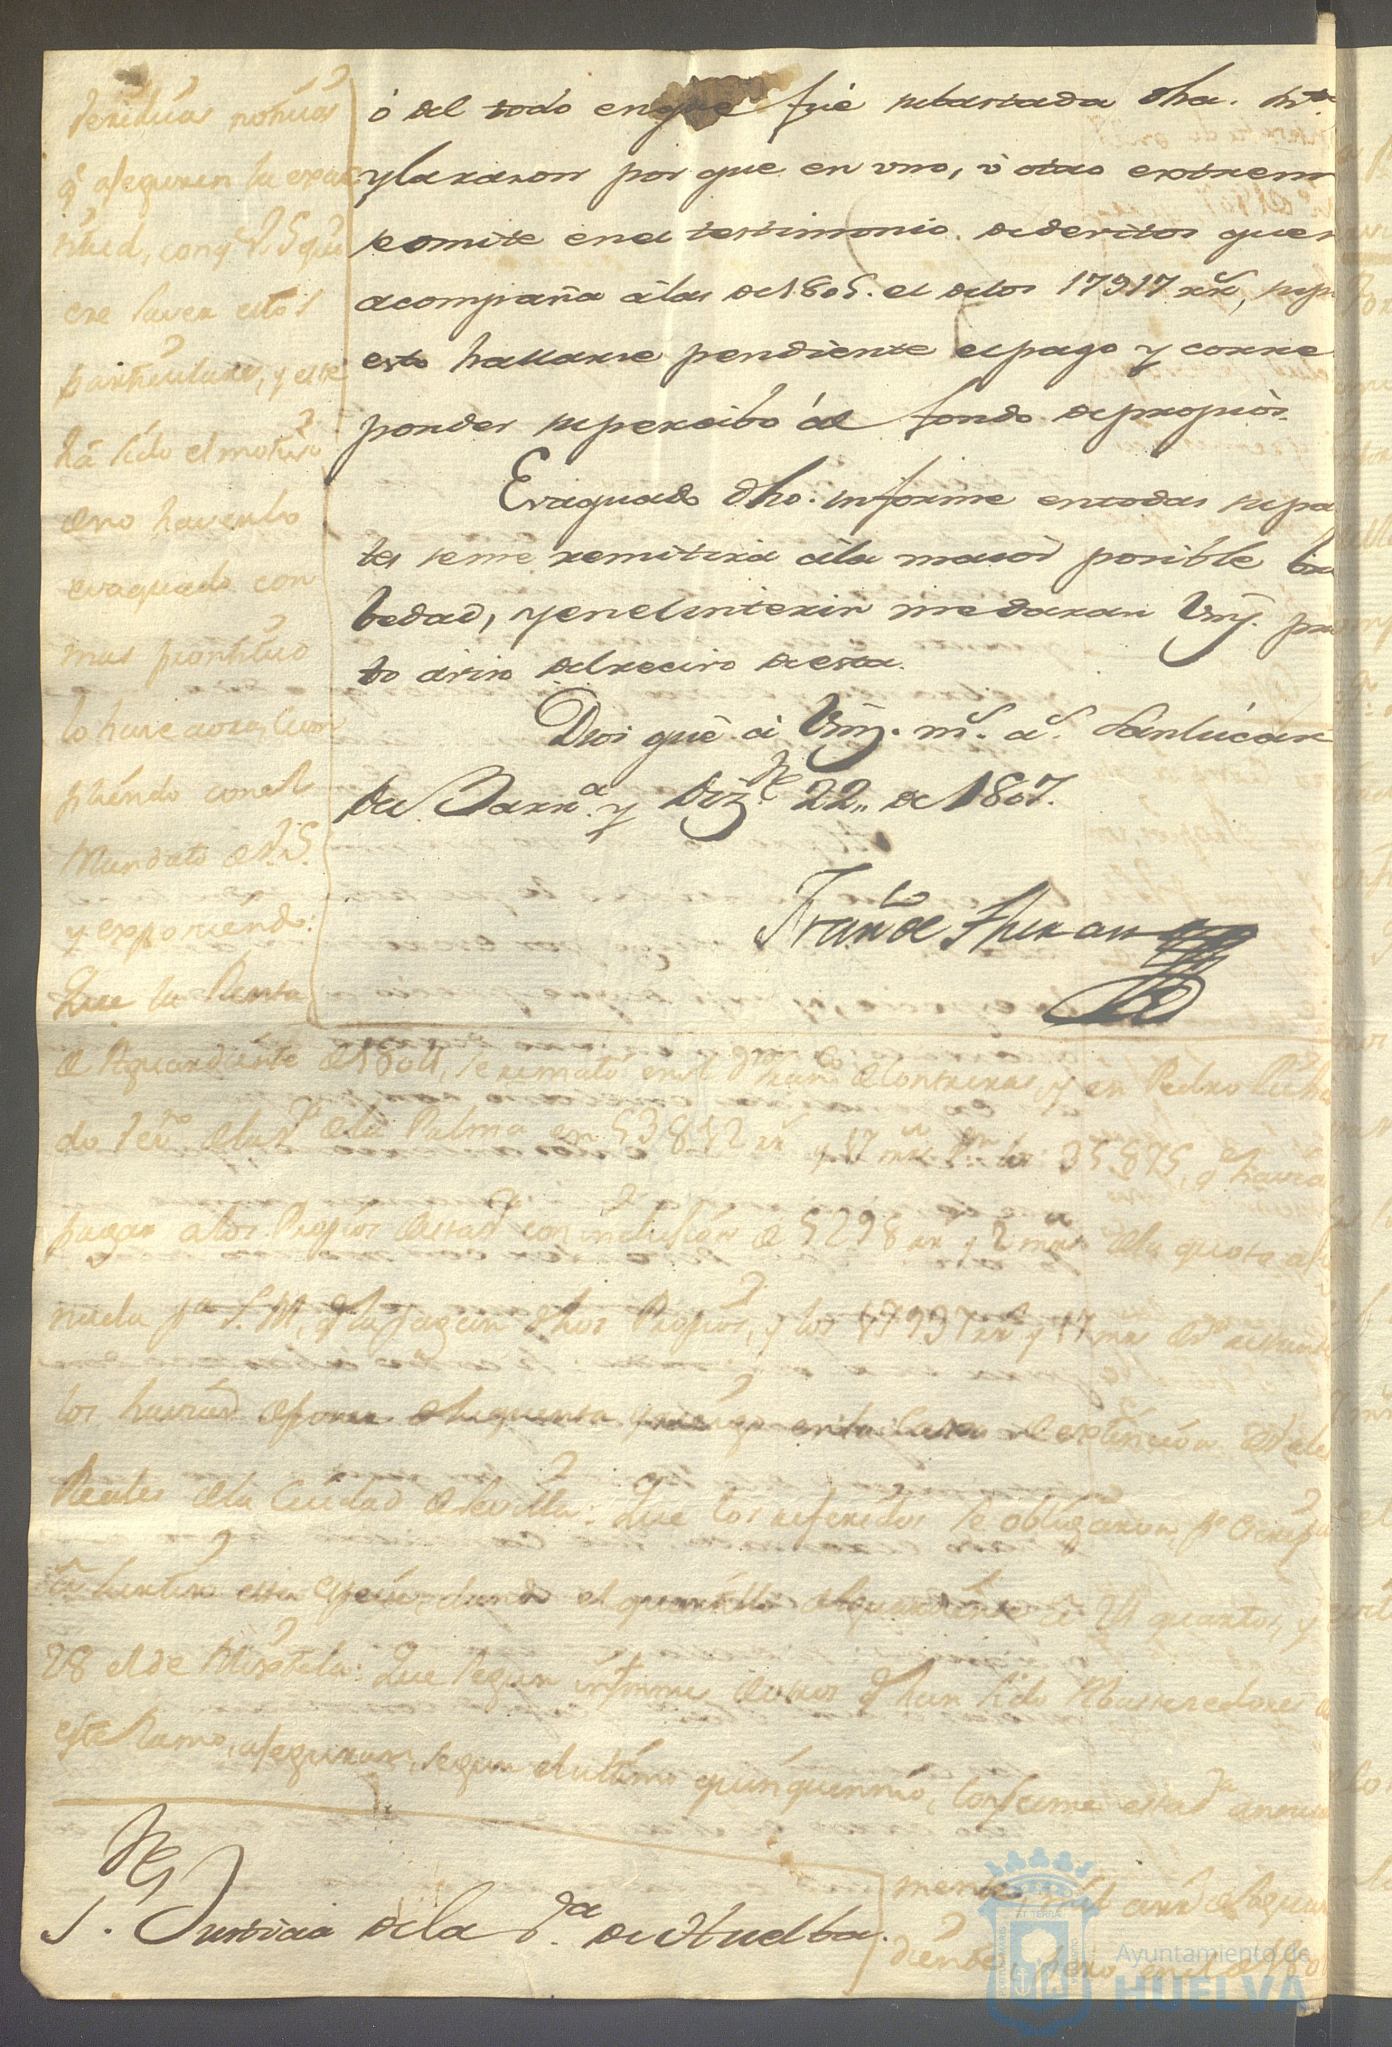 ò del todo en que fue subastada dha. Rta
y la razon por que en uno, ù otro extrem
se omite en el testimonio de devitos que
acompaña à las de 1805. el de los 17917 rr,
esto hallarse pendiente el pago y corres
ponder su percibo àl fondo de propios.
Evaquado dho. informe en todas sus pa
tes se me remitirà à la maior posible bre
bedad, y en el interin me daran Vmj. pron
to aviso del recivo de esta.
Dios gue à Vmj. ms. as. Sanlúcar
de Barra. y Dizre. 22,, de 1807.
Franco de Theran
Res
S. Justicia de la Va. de Huelba.
q aseguren la exac
titud, con q V.S. qui
ere saver estos
particulares, y este
hà sido el motivo
de no haverlo
evaquado con
mas prontitud
lo hace aora, cum
pliendo con el
Mandato de V.S.
y exponiendo:
Que la Renta
de Aguardiente de 1804, se remató en Franco de Contreras, y en Pedro
do Vecno. de la Va. de la Palma en 53812 rr y 17 mrs. los 35875, q havia
pagar a los Propios de esta Va. con inclusion de 5298 rr y 2 mrs de la quota
nuela pa S.M. q la pagan dhos Propios, y los 17937 rr y 17 mrs
los havian de poner de su quenta y riesgo en la Caxa de extincion de Vales
Reales de la Ciudad de Sevilla: Que los referidos se obligaron, pr Escrip
à surtir esta especie, dando el quartillo de Aguardiente à 24 quartos, y
28 el de Mixtela: Que segun informes de otros q han sido Abastecedores
este Ramo, aseguran, segun el ultimo quinquennio, consume esta Va. anual
mente, de Aguar
diente, pero en el de 180
Ayuntamiento de
HUELVA